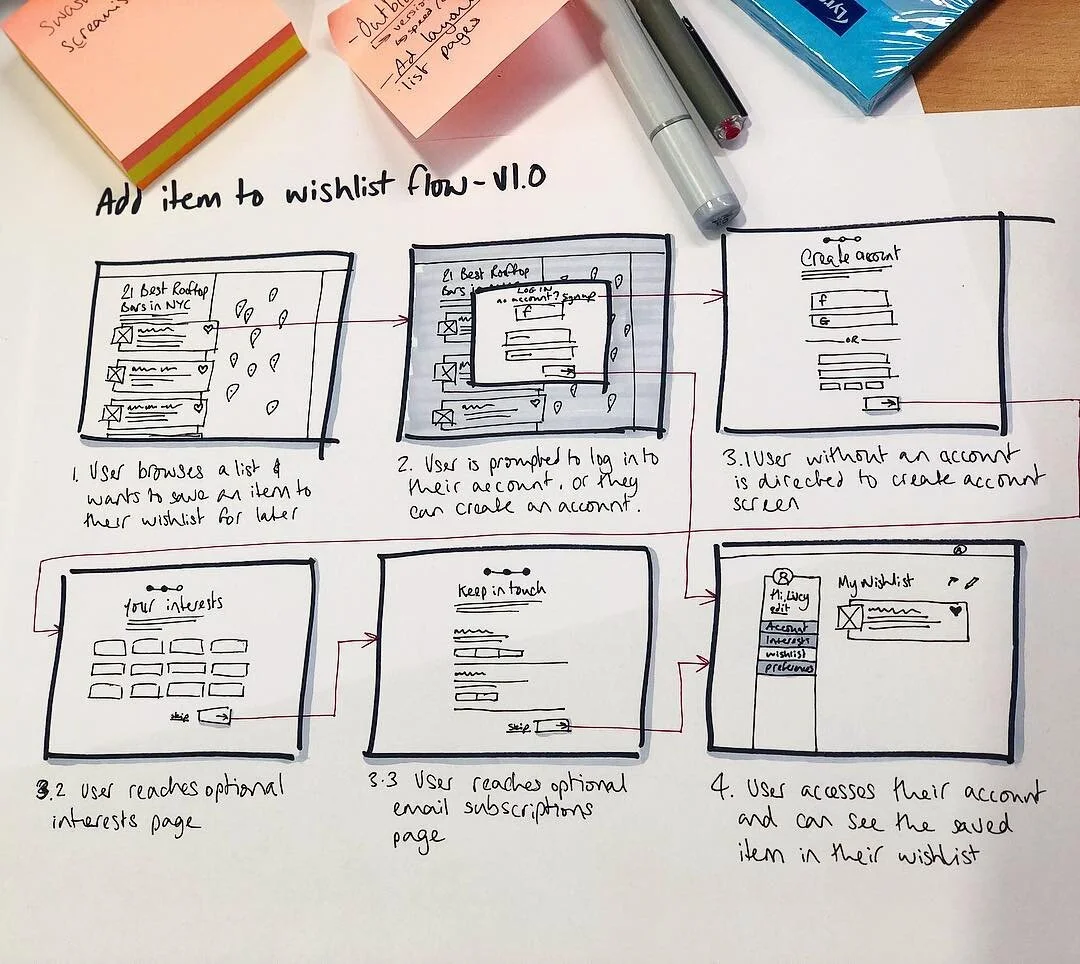 screamis
- Outb
→ version
→ speed
- Ad layou
list pages
Lyr
Add item to wishlist flow - V1.0
21 Best Rooftop
Bars in NYC
21 Best Rooftop
Bars i
LOG IN
no account? sign up
f
Create account
f
G
OR
1. User browses a list &
wants to save an item to
their wishlist for later
2. User is prompted to log into
their account, or they
can create an account.
3.1 User without an account
is directed to create account
screen
Your interests
skip
Keep in touch
skip
Hi, Lucy
edit
Account
Interests
wishlist
preferences
My Wishlist
3.2 User reaches optional
interests page
3.3 User reaches optional
email subscriptions
page
4. User accesses their account
and can see the saved
item in their wishlist